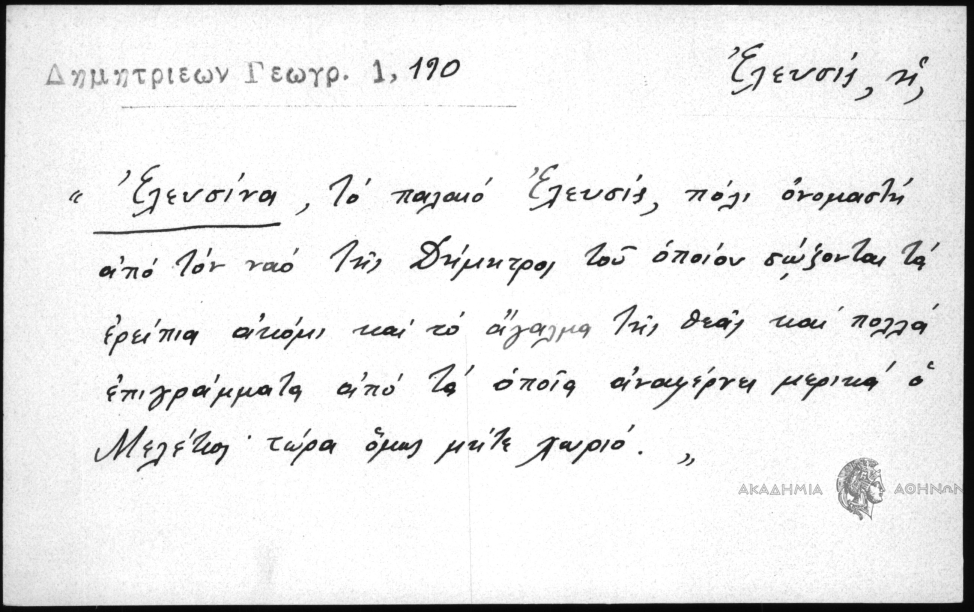 Δημητριεων Γεωγρ. 1, 190
Ἐλευσίς, ἡ,
« Ἐλευσίνα, τό παλαιό Ἐλευσίς, πόλι ὀνομαστή
ἀπό τόν ναό τῆς Δήμητρος τοῦ ὁποίου σῴζονται τά
ἐρείπια ἀκόμι καί τό ἄγαλμα τῆς θεᾶς καί πολλά
ἐπιγράμματα ἀπό τά ὁποῖα ἀναφέρνει μερικά ὁ
Μελέτιος· τώρα ὅμως μήτε χωριό. »
ΑΚΑΔΗΜΙΑ ΑΘΗΝΩΝ